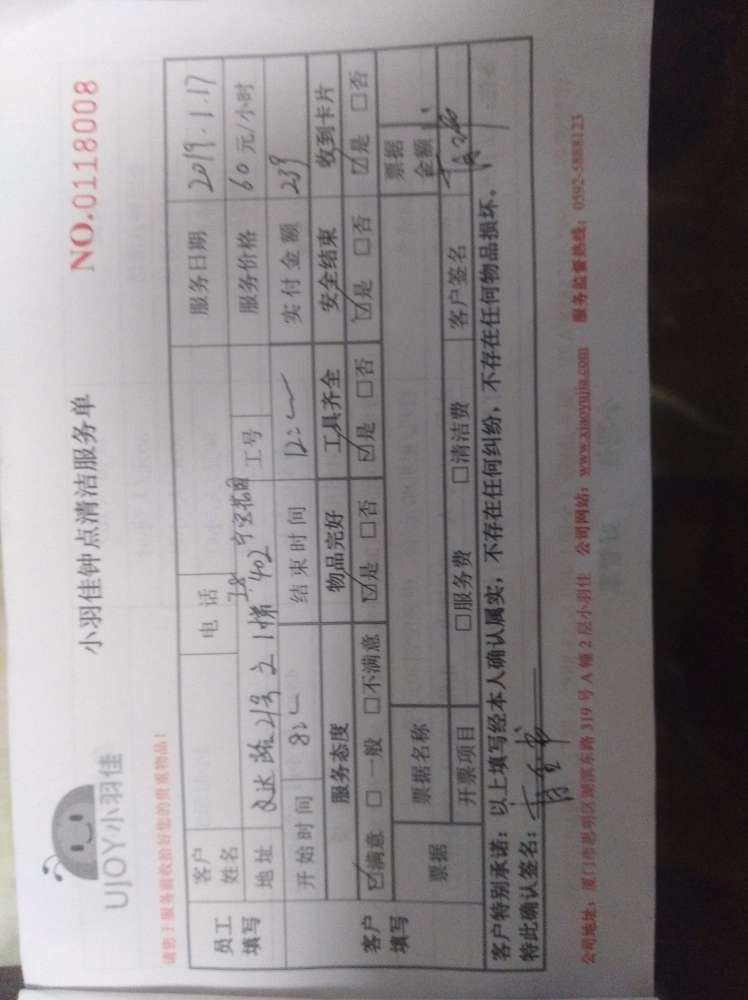 UJOY小羽佳
小羽佳钟点清洁服务单
NO.0118008
请您于服务前收拾好您的贵重物品!
员工填写 客户姓名 电话 服务日期 2019.1.17
地址 文达路21号 21梯402 工号 服务价格 60元/小时
开始时间 8: 结束时间 12: 实付金额 239
客户填写 服务态度 物品完好 工具齐全 安全结束 收到卡片
☑满意 □一般 □不满意 ☑是 □否 ☑是 □否 ☑是 □否 ☑是 □否
票据 票据名称 票据金额
开票项目 □服务费 □清洁费 客户签名
客户特别承诺:以上填写经本人确认属实,不存在任何纠纷,不存在任何物品损坏。
特此确认签名:
公司地址:厦门市思明区湖滨东路319号A幢2层小羽佳 公司网站:www.xiaoyujia.com 服务监督热线:0592-5888123